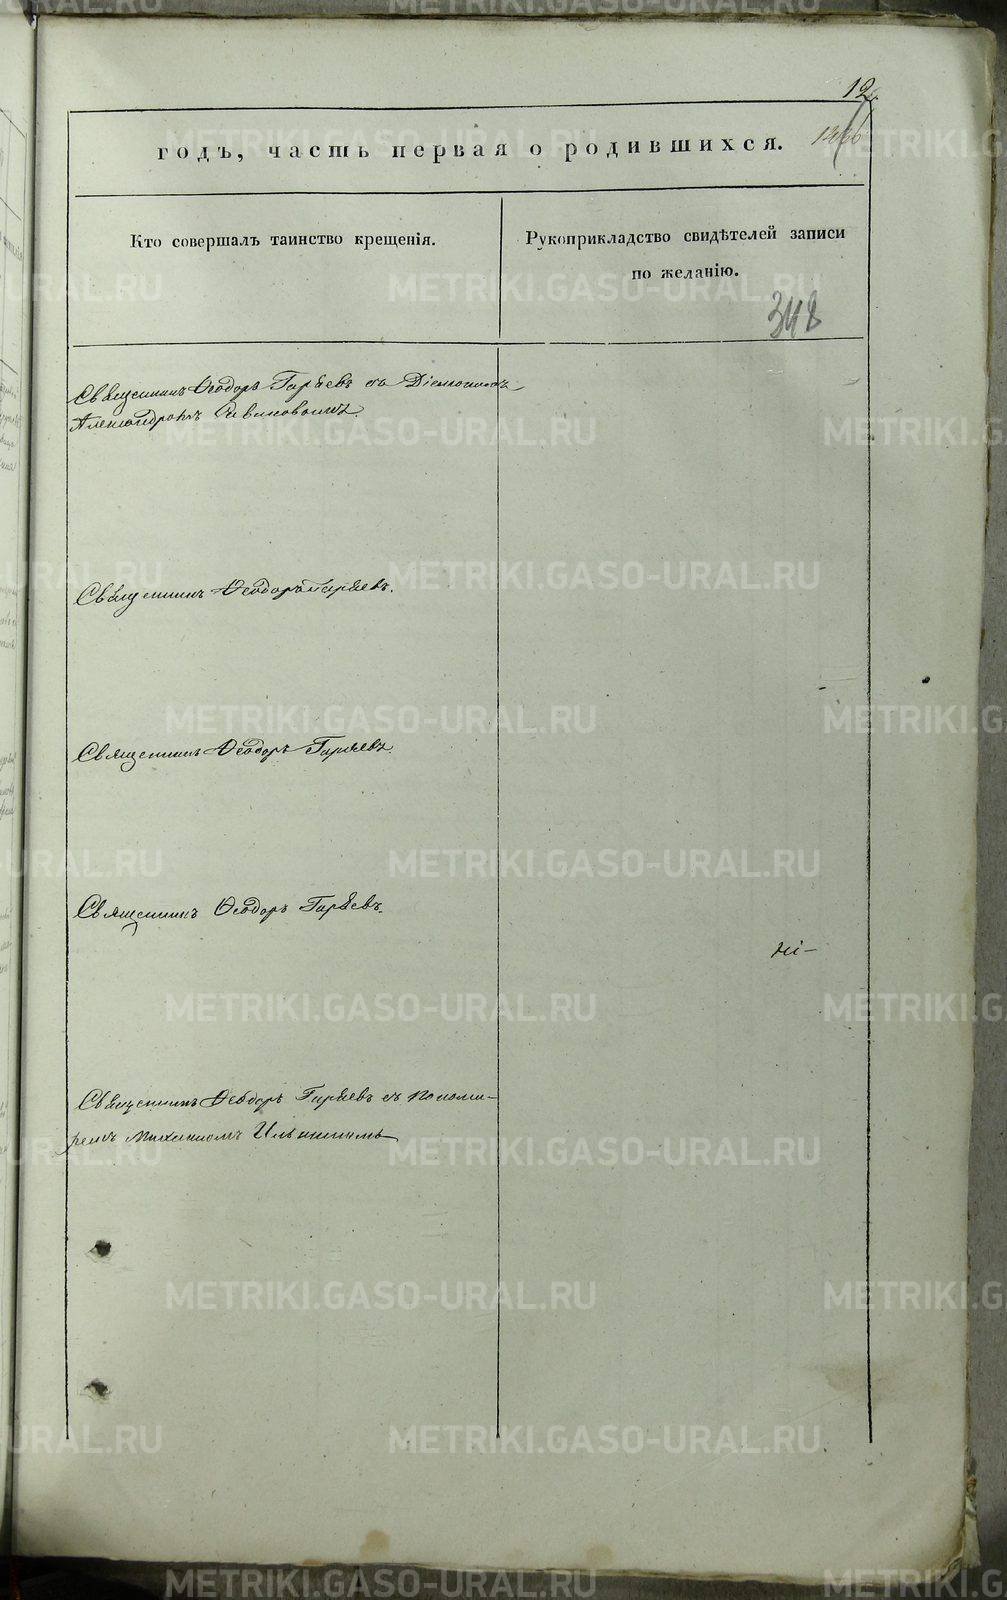 12.
годъ, часть первая о родившихся.
Кто совершалъ таинство крещенія.
Рукоприкладство свидѣтелей записи
по желанію.
348
Священникъ Ѳеодоръ Гаряевъ съ Діакономъ
Александромъ
Священникъ Ѳеодоръ Гаряевъ.
Священникъ Ѳеодоръ Гаряевъ
Священникъ Ѳеодоръ Гаряевъ.
Священникъ Ѳеодоръ Гаряевъ съ Понома-
ремъ Михаиломъ Ильинымъ
METRIKI.GASO-URAL.RU